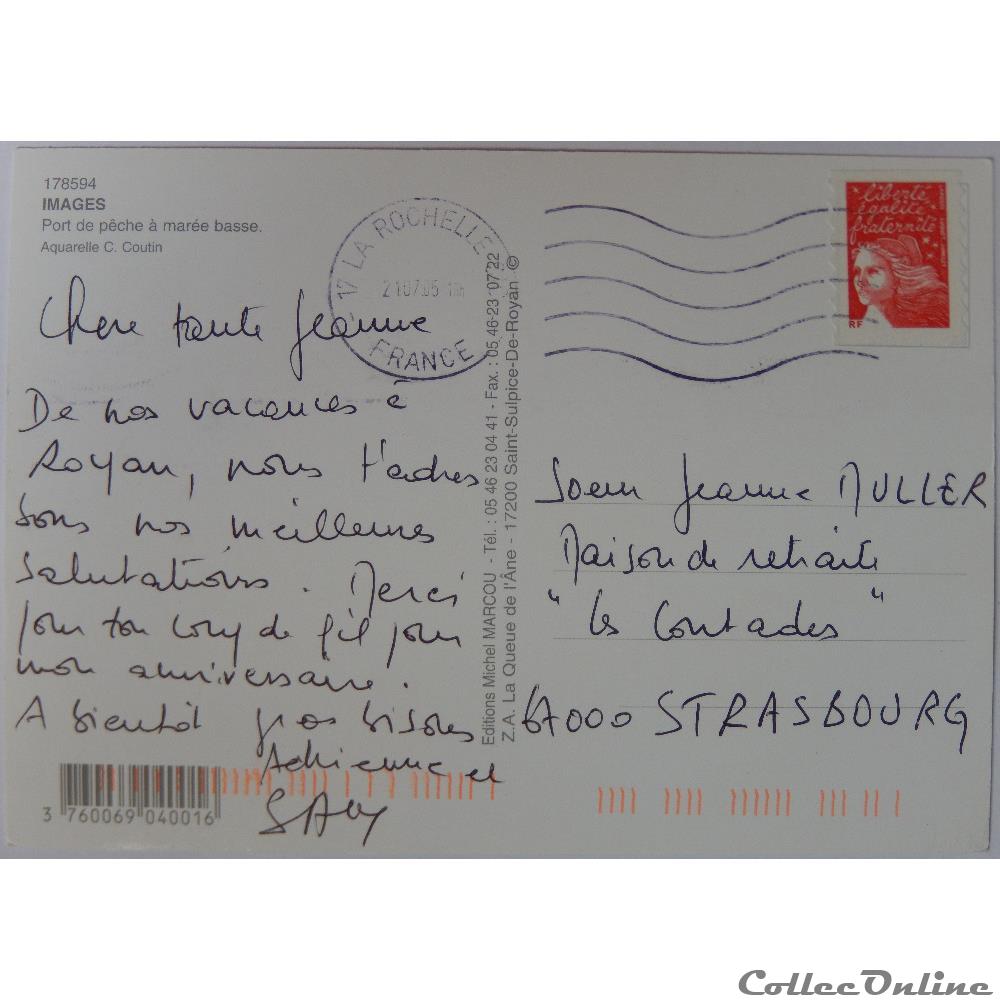 178594
IMAGES
Port de pêche à marée basse.
Aquarelle C. Coutin
17 LA ROCHELLE
FRANCE
liberté
égalité
fraternité
RF
Chere tante Jeanne
De nos vacances à
Royan, nous t'adres
sons nos meilleures
salutations. Merci
pour ton coup de fil pour
mon anniversaire.
A bientôt gros bisous
Adrienne et
Editions Michel MARCOU - Tél. : 05 46 23 04 41 - Fax. : 05 46 23 07 22
Z.A. La Queue de l'Âne - 17200 Saint-Sulpice-De-Royan ©
Soeur Jeanne MULLER
Maison de retraite
"Les Contades"
67000 STRASBOURG
3 760069 040016
CollecOnline